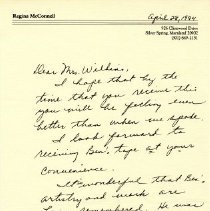 Regina McConnell
April 28, 1994
Silver Spring, Maryland 20902
Dear Mrs. Watkins,
I hope that by the
time that you receive this
you will be feeling even
better than when we spoke.
I look forward to
receiving Ben's tape at your
convenience.
It's wonderful that Ben's
artistry and work are
remembered. He was